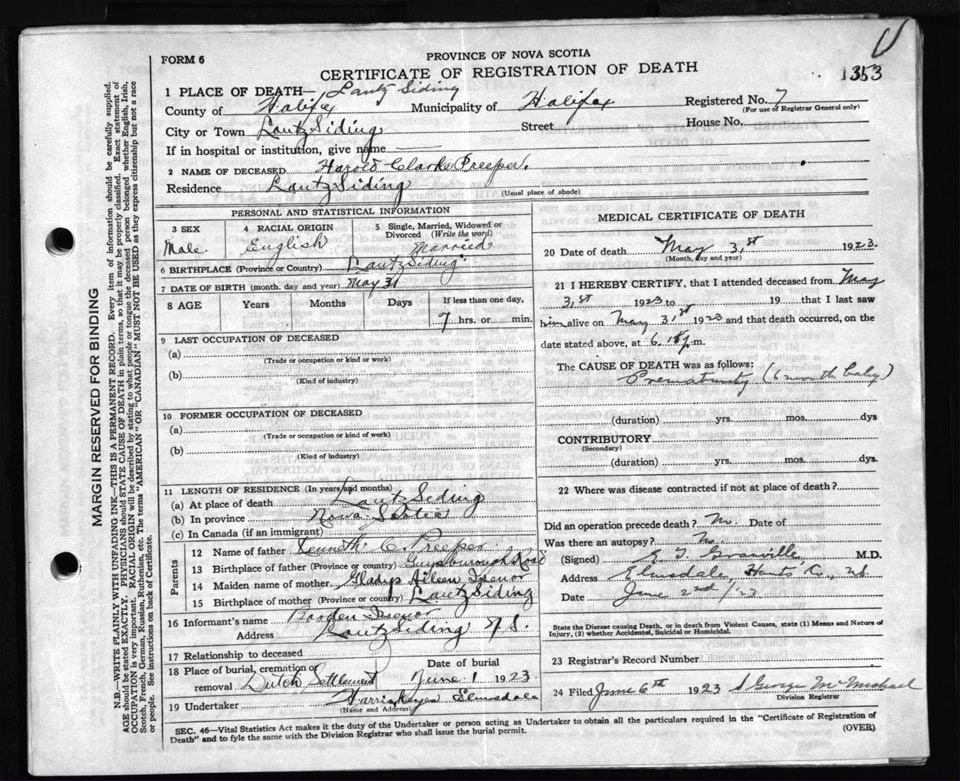 FORM 6
PROVINCE OF NOVA SCOTIA
CERTIFICATE OF REGISTRATION OF DEATH
1353
1 PLACE OF DEATH— Lantz Siding
County of Halifax Municipality of Halifax Registered No. 7
(For use of Registrar General only)
City or Town Lantz Siding Street House No.
If in hospital or institution, give name
2 NAME OF DECEASED Harold Clarke Preeper.
Residence Lantz Siding
(Usual place of abode)
PERSONAL AND STATISTICAL INFORMATION
3 SEX Male.
4 RACIAL ORIGIN English
5 Single, Married, Widowed or Divorced (Write the word) Married
6 BIRTHPLACE (Province or Country) Lantz Siding
7 DATE OF BIRTH (month, day and year) May 31
8 AGE Years Months Days If less than one day,
7 hrs. or min.
9 LAST OCCUPATION OF DECEASED
(a)
(Trade or occupation or kind of work)
(b)
(Kind of industry)
10 FORMER OCCUPATION OF DECEASED
(a)
(Trade or occupation or kind of work)
(b)
(Kind of industry)
11 LENGTH OF RESIDENCE (In years and months)
(a) At place of death Lantz Siding
(b) In province Nova Scotia
(c) In Canada (if an immigrant)
Parents
12 Name of father Kenneth C. Preeper
13 Birthplace of father (Province or country) Guysborough Road
14 Maiden name of mother Gladys Aileen
15 Birthplace of mother (Province or country) Lantz Siding
16 Informant's name
Address Lantz Siding N.S.
17 Relationship to deceased
18 Place of burial, cremation or removal Dutch Settlement Date of burial June 1 1923
19 Undertaker Harris Keyes Elmsdale
(Name and Address)
MEDICAL CERTIFICATE OF DEATH
20 Date of death May 31st 1923.
(Month, day and year)
21 I HEREBY CERTIFY, that I attended deceased from May
31st 1923 to 19 that I last saw
him alive on May 31st 1923 and that death occurred, on
date stated above, at 6.15 p.m.
The CAUSE OF DEATH was as follows:
Prematurity (6 month baby)
(duration) yrs. mos. dys
CONTRIBUTORY
(Secondary)
(duration) yrs. mos. dys.
22 Where was disease contracted if not at place of death?
Did an operation precede death? No. Date of
Was there an autopsy? No.
(Signed) M.D.
Address Elmsdale, Hants Co., N.S.
Date June 2nd /23
State the Disease causing Death, or in death from Violent Causes, state (1) Means and Nature of
Injury, (2) whether Accidental, Suicidal or Homicidal.
23 Registrar's Record Number
24 Filed June 6th 1923 George McMichael
Division Registrar
SEC. 46—Vital Statistics Act makes it the duty of the Undertaker or person acting as Undertaker to obtain all the particulars required in the "Certificate of Registration of
Death" and to fyle the same with the Division Registrar who shall issue the burial permit.
(OVER)
MARGIN RESERVED FOR BINDING
N.B.—WRITE PLAINLY WITH UNFADING INK—THIS IS A PERMANENT RECORD. Every item of information should be carefully supplied.
AGE should be stated EXACTLY. PHYSICIANS should STATE CAUSE OF DEATH in plain terms, so that it may be properly classified. Exact statement of
OCCUPATION is very important. RACIAL ORIGIN will be described by stating to what people or tongue the deceased person belonged whether English, Irish,
Scotch, French, German, Russian, Ruthenian, etc. The terms "AMERICAN" OR "CANADIAN" MUST NOT BE USED as they express citizenship but not a race
or people. See instructions on back of Certificate.